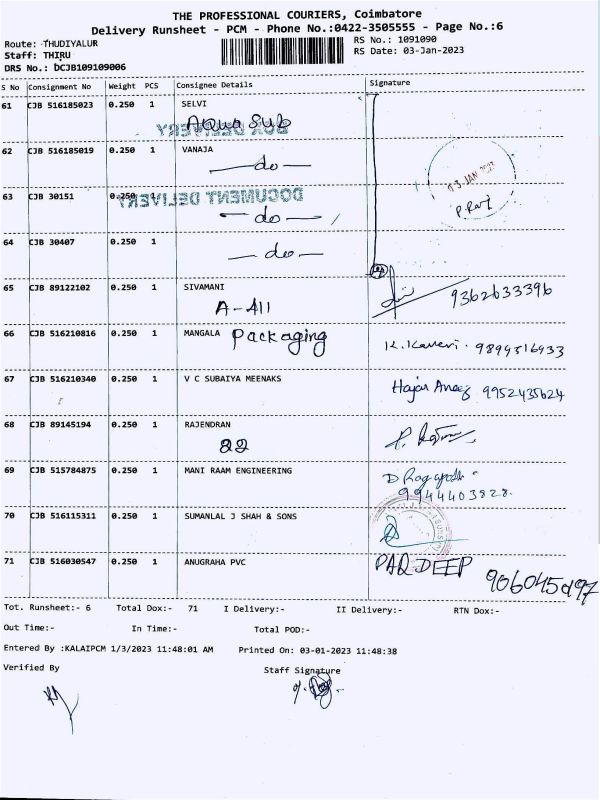 THE PROFESSIONAL COURIERS, Coimbatore
Delivery Runsheet - PCM - Phone No.:0422-3505555 - Page No.:6
Route: THUDIYALUR RS No.: 1091090
Staff: THIRU RS Date: 03-Jan-2023
DRS No.: DCJB109109006
S No Consignment No Weight PCS Consignee Details Signature
61 CJB 516185023 0.250 1 SELVI
Aqua Sub
BOX DELIVERY
62 CJB 516185019 0.250 1 VANAJA
— do —
03 JAN 2023
63 CJB 30151 0.250 1
DOCUMENT DELIVERY
— do —
64 CJB 30407 0.250 1
— do —
65 CJB 89122102 0.250 1 SIVAMANI
A-411 9362633396
66 CJB 516210816 0.250 1 MANGALA Packaging K. Kaveri. 9894316933
67 CJB 516210340 0.250 1 V C SUBAIYA MEENAKS 9952435624
68 CJB 89145194 0.250 1 RAJENDRAN
82
69 CJB 515784875 0.250 1 MANI RAAM ENGINEERING
9944403828.
70 CJB 516115311 0.250 1 SUMANLAL J SHAH & SONS
71 CJB 516030547 0.250 1 ANUGRAHA PVC PARDEEP
Tot. Runsheet:- 6 Total Dox:- 71 I Delivery:- II Delivery:- RTN Dox:-
Out Time:- In Time:- Total POD:-
Entered By :KALAIPCM 1/3/2023 11:48:01 AM Printed On: 03-01-2023 11:48:38
Verified By Staff Signature